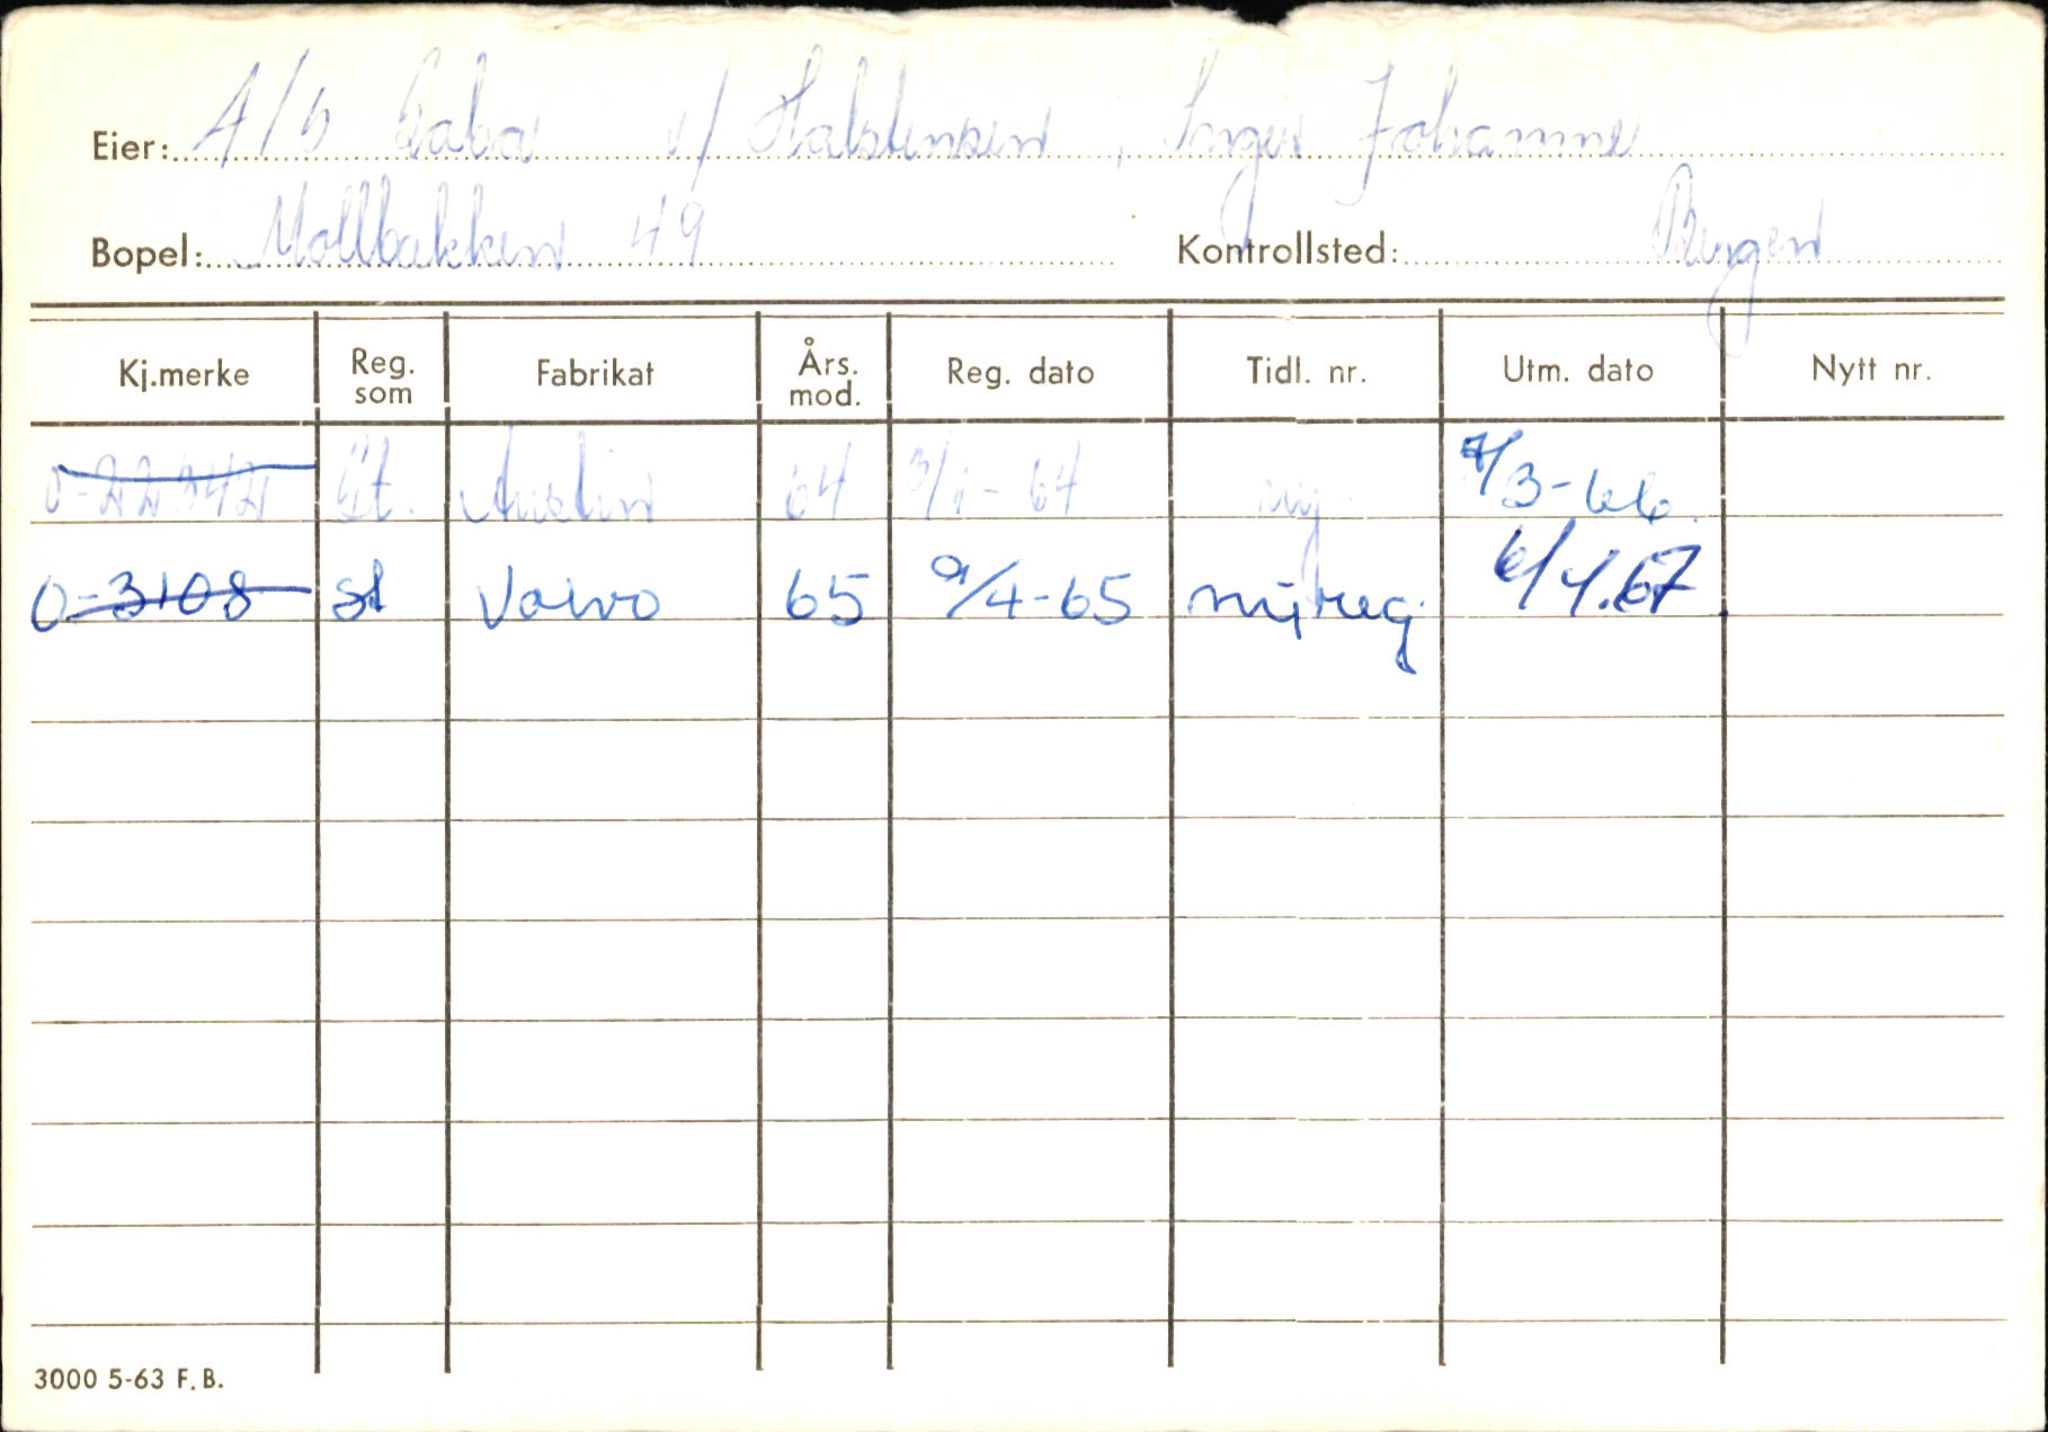 Eier: A/S v/ Halstensen, Inger Johanne
Bopel: Møllbakken 49 Kontrollsted: Bergen
Kj.merke Reg. som Fabrikat Års. mod. Reg. dato Tidl. nr. Utm. dato Nytt nr.
St. Austin 64 3/1-64 ny. 7/3-66.
O-3108 st Volvo 65 9/4-65 nyreg. 6/4.67.
3000 5-63 F.B.